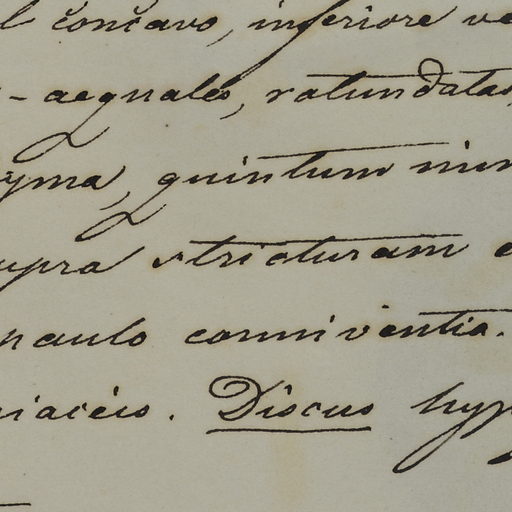 l concavo, inferiore ve
-aequales, rotundatas,
yma, quintum min
upra stricturam
paulo conniventia.
iaceis. Discus hyp